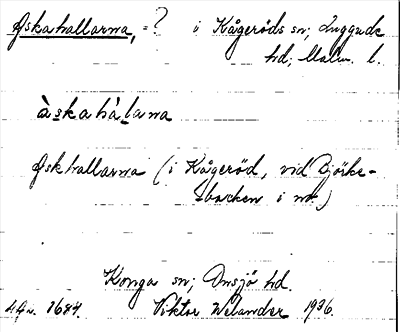 Åskahallarna, =? i Kågeröds sn; Luggude
hd; Malm. l.
àskahàlarna
Åskhallarna (i Kågeröd, vid Björke-
backen i no.)
Konga sn; Onsjö hd.
Viktor Welander 1936.